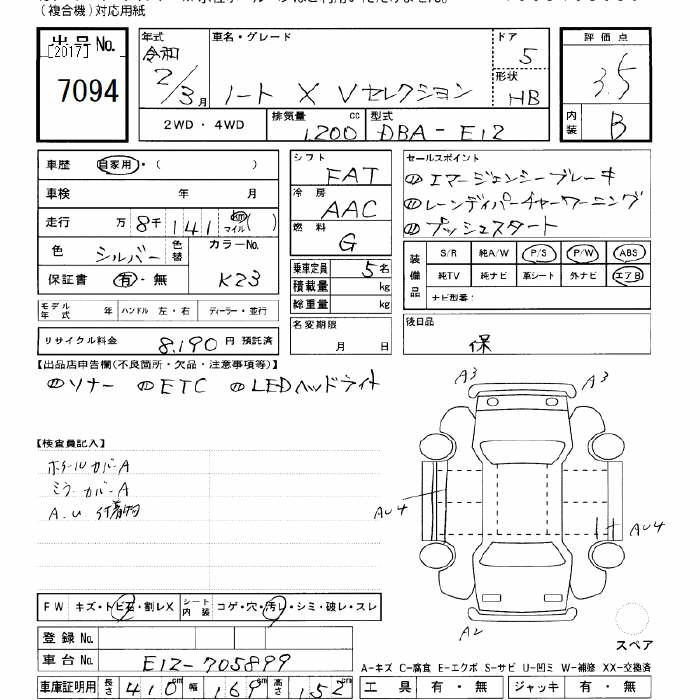 (複合機)対応用紙
出品No.
[2017]
7094
年式
令和
2/3月
車名・グレード
ノート X Vセレクション
ドア
5
形状
HB
評価点
3.5
内装
B
2WD・4WD
排気量 1,200 cc
型式 DBA-E12
車歴 自家用・( )
車検 年 月
走行 万 8千141 km マイル ( )
色 シルバー 色替
カラーNo.
K23
保証書 有・無
モデル年式 年 ハンドル 左・右 ディーラー・並行
リサイクル料金 8,190 円 預託済
シフト
FAT
冷房
AAC
燃料
G
乗車定員 5名
積載量 kg
総重量 kg
名変期限
月 日
セールスポイント
エマージェンシーブレーキ
レーンディパーチャーワーニング
プッシュスタート
装備品
S/R 純A/W P/S P/W ABS
純TV 純ナビ 革シート 外ナビ エアB
ナビ型番:
後日品
保
【出品店申告欄(不良箇所・欠品・注意事項等)】
ソナー ETC LEDヘッドライト
【検査員記入】
ホイールカバーA
ミラーカバーA
A.U 付着物
A3 A3
AU4 AU4
A2
スペア
FW キズ・トビ石・割レX シート内装 コゲ・穴・汚レ・シミ・破レ・スレ
登録No.
車台No. E12-705899
車庫証明用 長さ 410cm 幅 169cm 高さ 152cm
A-キズ C-腐食 E-エクボ S-サビ U-凹ミ W-補修 XX-交換済
工具 有・無 ジャッキ 有・無